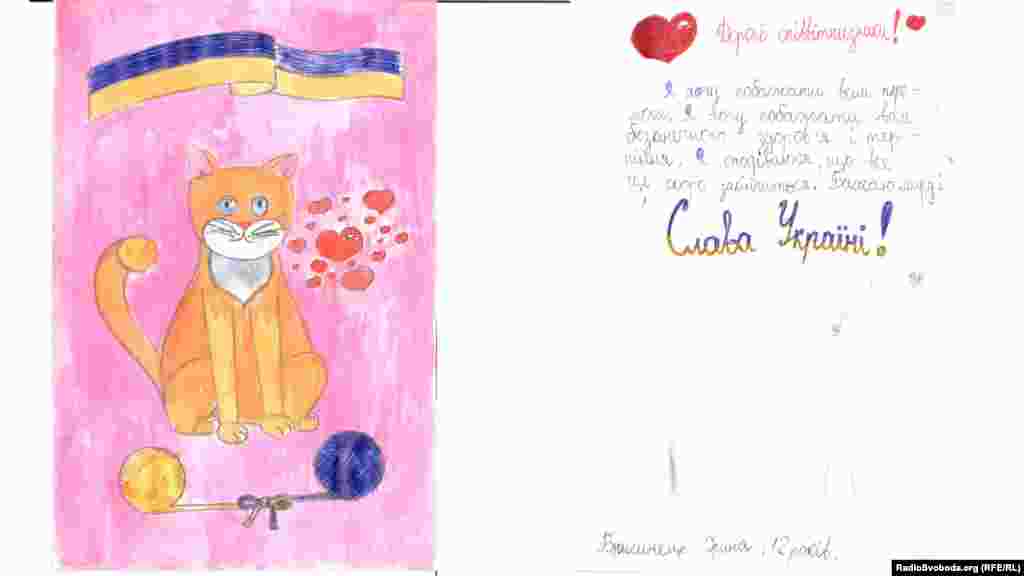 Дорогі співвітчизники!
Я хочу побажати вам пере-
моги. Я хочу побажати вам
безпечного здоров'я і тер-
піння. Я сподіваюся, що все
це скоро закінчиться. Бажаю миру!
Слава Україні!
Ірина, 12 років.
RadioSvoboda.org (RFE/RL)